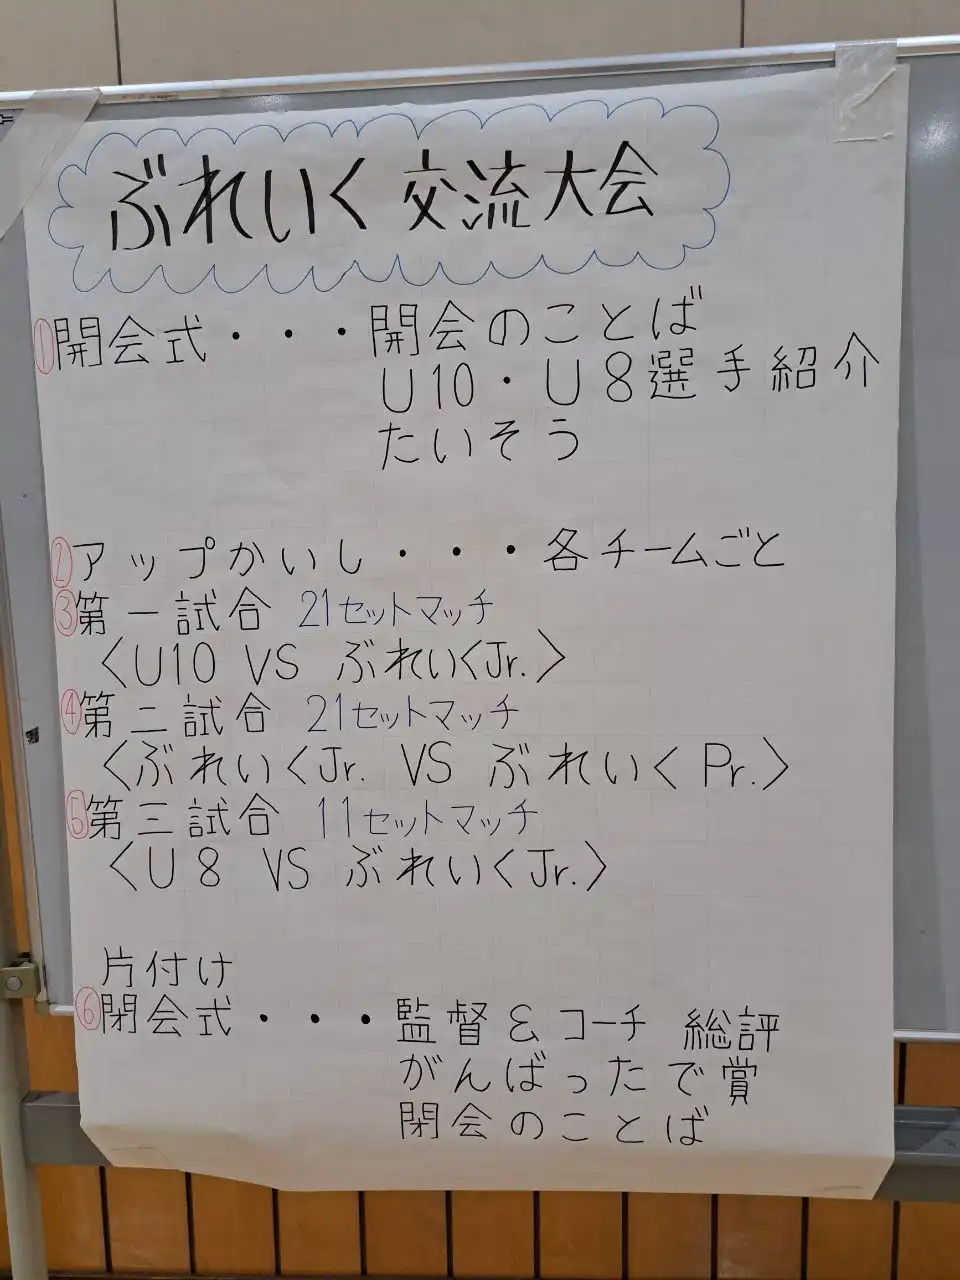 ぶれいく交流大会
①開会式・・・開会のことば
U10・U8選手紹介
たいそう
②アップかいし・・・各チームごと
③第一試合 21セットマッチ
〈U10 VS ぶれいくJr.〉
④第二試合 21セットマッチ
〈ぶれいくJr. VS ぶれいくPr.〉
⑤第三試合 11セットマッチ
〈U8 VS ぶれいくJr.〉
片付け
⑥閉会式・・・監督&コーチ 総評
がんばったで賞
閉会のことば